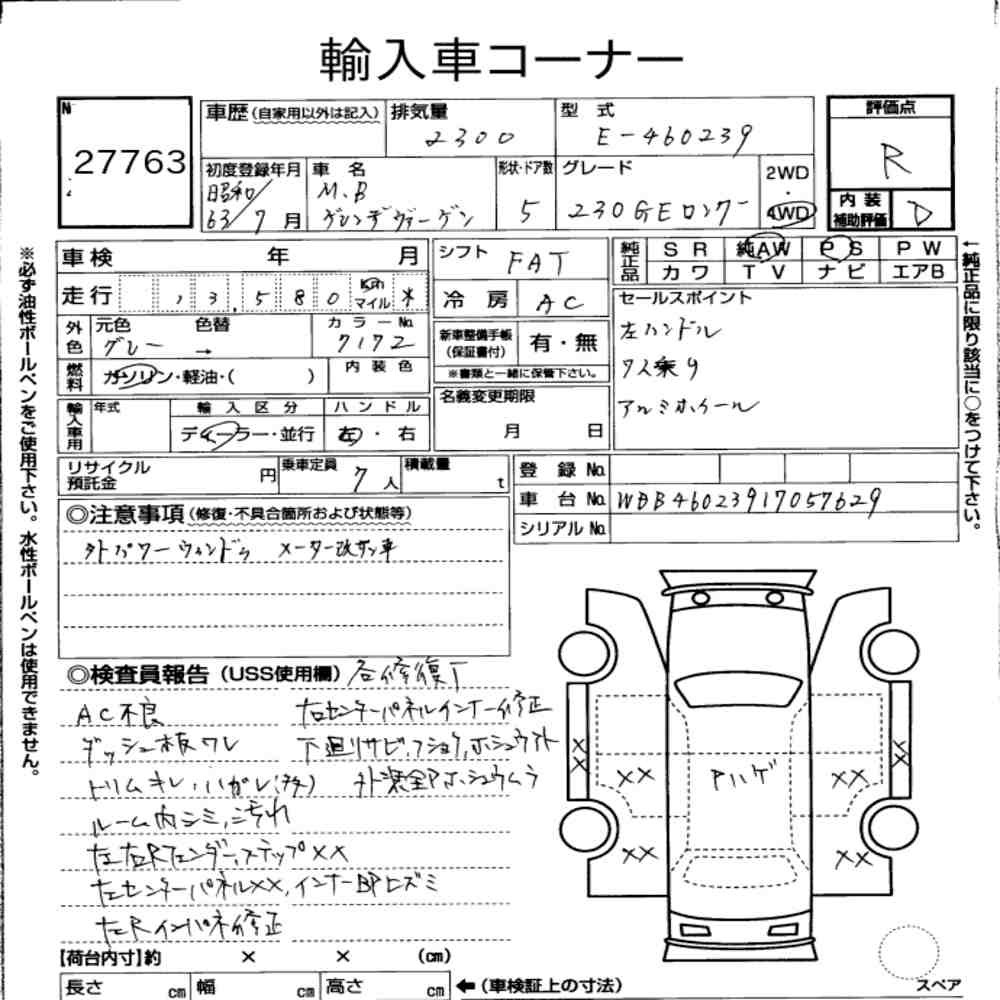 輸入車コーナー
N
27763
車歴(自家用以外は記入) 排気量 2300 型式 E-460239
初度登録年月 昭和 63/7月 車名 M.B ゲレンデヴァーゲン 形状・ドア数 5 グレード 230GEロング 2WD・4WD
評価点 R
内装補助評価 D
車検 年 月
走行 13,580 Km マイル *
外色 元色 グレー 色替 → カラーNo. 7172
燃料 ガソリン・軽油・( ) 内装色
輸入車用 年式 輸入区分 ディーラー・並行 ハンドル 左・右
シフト FAT
冷房 AC
新車整備手帳(保証書付) 有・無
※書類と一緒に保管下さい。
名義変更期限
月 日
純正品 SR 純AW PS PW
カワ TV ナビ エアB
セールスポイント
左ハンドル
7人乗り
アルミホイール
リサイクル預託金 円 乗車定員 7人 積載量 t
登録No.
車台No. WDB46023917057629
シリアルNo.
◎注意事項(修復・不具合箇所および状態等)
外パワーウィンドウ メーター改ザン車
◎検査員報告(USS使用欄) 各修復了
AC不良 右センターパネルインナー修正
ダッシュ板ワレ 下廻りサビ、フショク、ホシュウアト
トリムキレ・ハガレ(多) 外装全Pホシュウムラ
ルーム内シミ、こ汚れ
左右Rフェンダー、ステップXX
左センターパネルXX、インナーBPヒズミ
左Rインパネ修正
XX
XX
XX
XX
Pハゲ
XX
XX
スペア
【荷台内寸】約 × × (cm)
長さ cm 幅 cm 高さ cm ←(車検証上の寸法)
※必ず油性ボールペンをご使用下さい。水性ボールペンは使用できません。
←純正品に限り該当に○をつけて下さい。